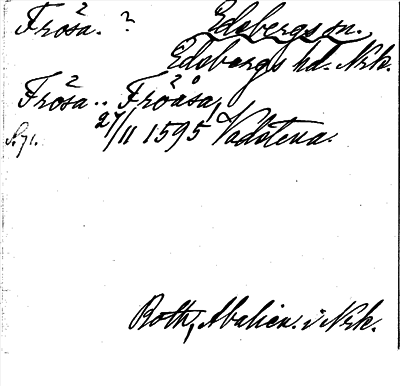 Frösa. ? Edsbergs sn.
Edsbergs hd. Nrk.
Frösa.. Fröåsa,
S. 71. 27/11 1595 Vadstena.
Roth, Abalien. i Nrk.